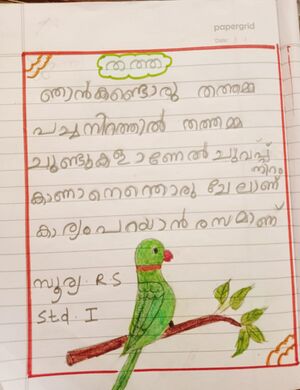 papergrid
Date: / /
തത്ത
ഞാൻകണ്ടൊരു തത്തമ്മ
പച്ചനിറത്തിൽ തത്തമ്മ
ചുണ്ടുകളാണേൽ ചുവപ്പ് നിറം
കാണാനെന്തൊരു ചേലാണ്
കാര്യംപറയാൻ രസമാണ്
സൂര്യ. R.S
Std. I